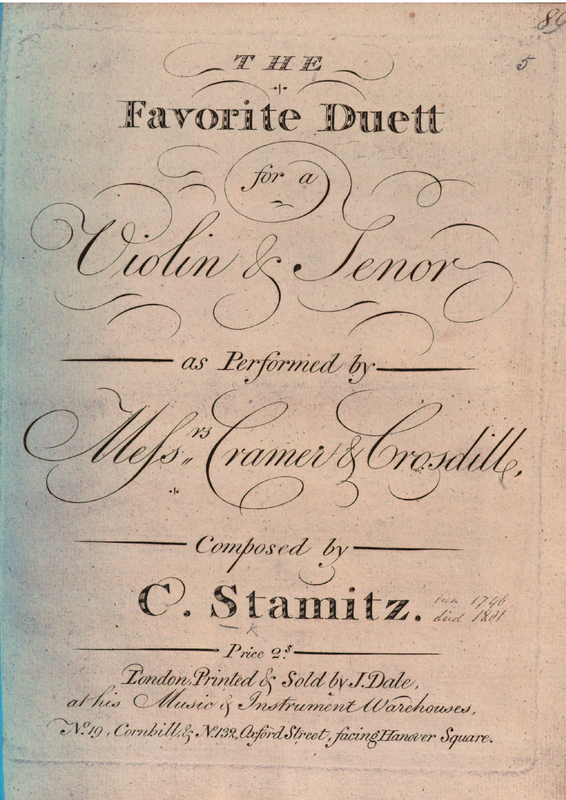 89
5
THE
Favorite Duett
for a
Violin & Tenor
as Performed by
Messrs Cramer & Crosdill,
Composed by
C. Stamitz.
born 1746
died 1801
K
Price 2s
London, Printed & Sold by J. Dale,
at his Music & Instrument Warehouses,
No. 19, Cornhill, & No. 132, Oxford Street, facing Hanover Square.